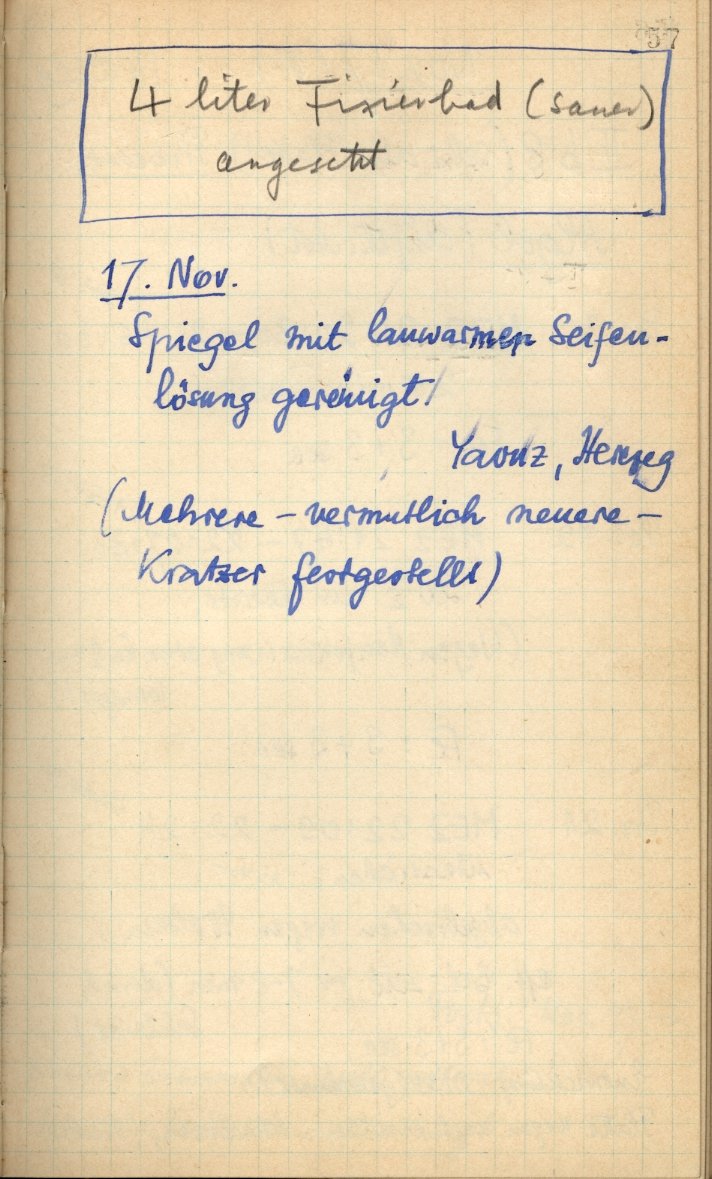 57
4 liter Fixierbad (sauer)
angesetzt
17. Nov.
Spiegel mit lauwarmer Seifen-
lösung gereinigt.
Yavuz, Herzog
(Mehrere – vermutlich neuere –
Kratzer festgestellt)